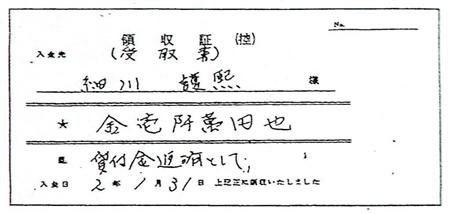 No.
領収証(控)
(受取書)
入金先
細川 護熙 様
★ 金壱阡萬円也
但 貸付金返済として、
入金日 2年 1月 31日 上記正に領収いたしました